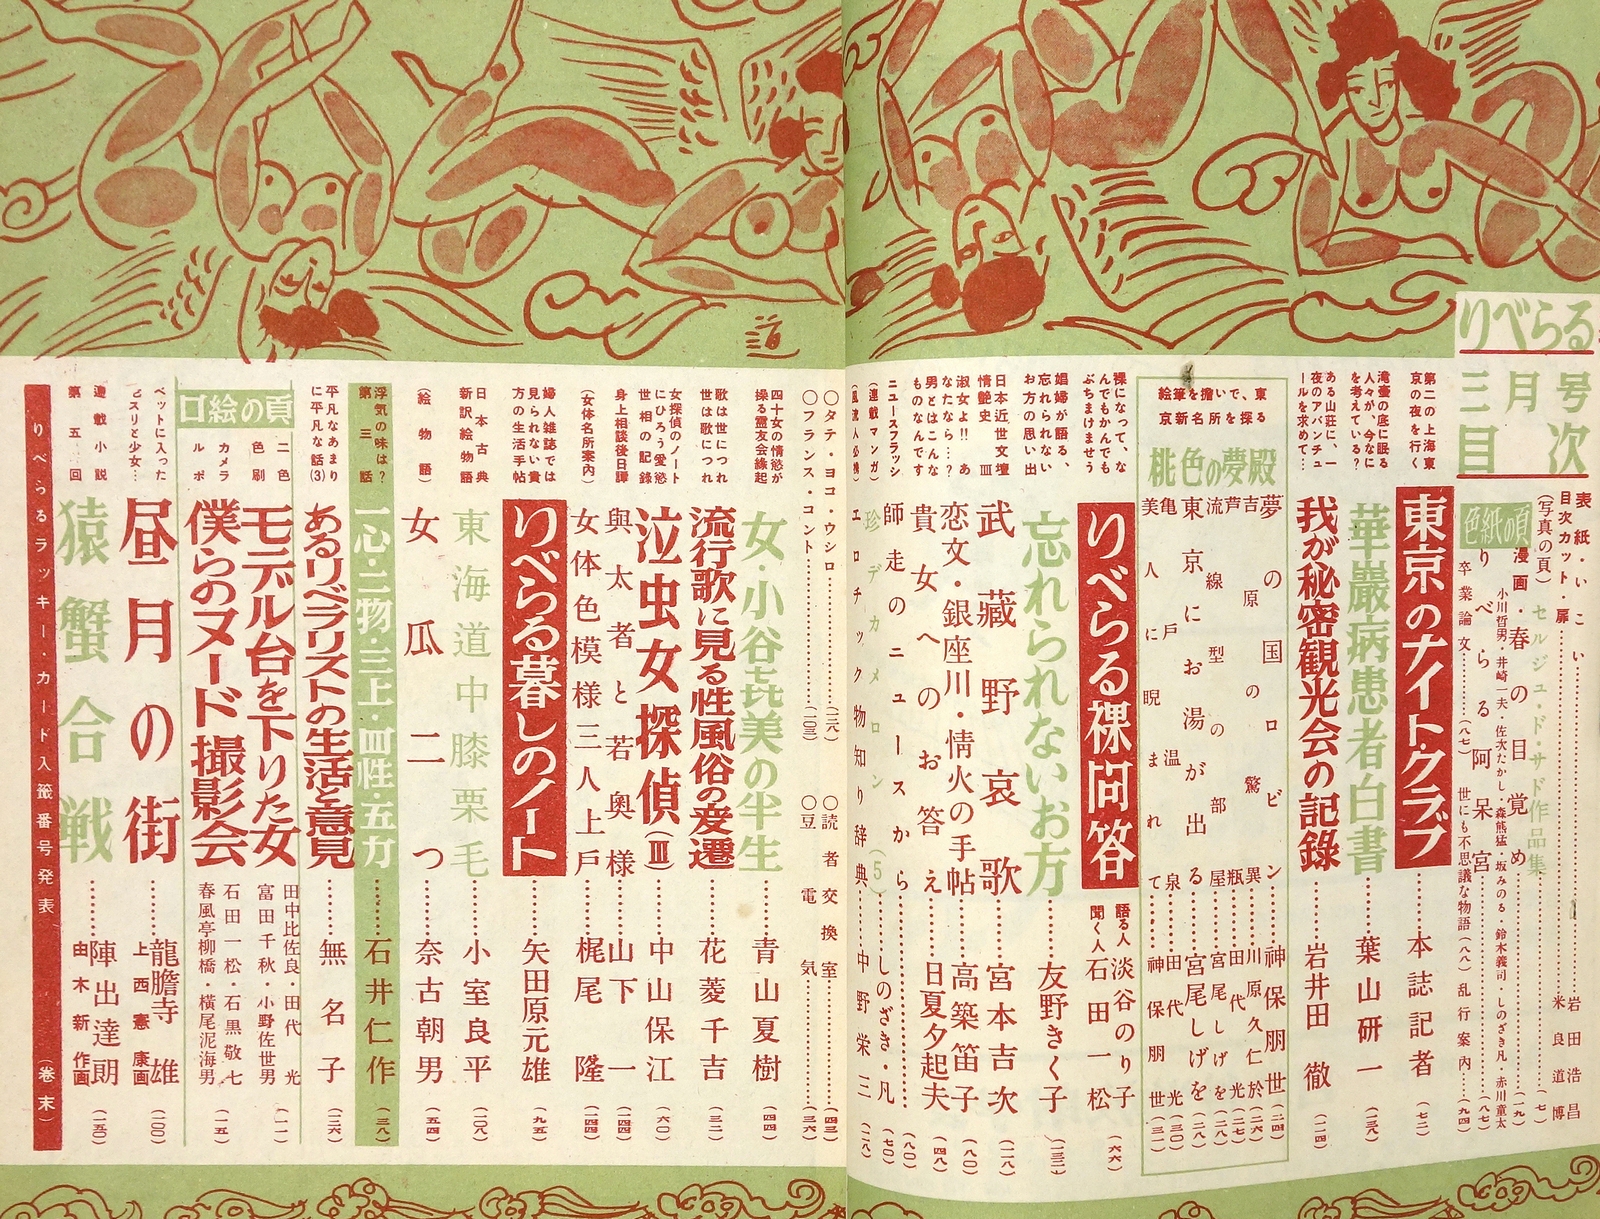 りべらる
三月号
目次
表紙・いこい……岩田浩昌
目次カット・扉……米良道博
(写真の頁) セルジュ・ド・サド作品集……(七)
色紙の頁
漫画・春の目覚め……(一九)
小川哲男・井崎一夫・佐次たかし・森熊猛・坂みのる・鈴木義司・しのざき凡・赤川童太
りべらる阿呆宮……(八七)
卒業論文……(八七) 世にも不思議な物語(八八) 乱行案内……(九四)
第二の上海東京の夜を行く
東京のナイトクラブ……本誌記者(七二)
滝壺の底に眠る人々が、今なにを考えている?
華巖病患者白書……葉山研一(一三八)
ある山荘に、一夜のアバンチュールを求めて…
我が秘密観光会の記録……岩井田徹(一二四)
絵筆を擔いで、東京新名所を探る
桃色の夢殿
夢の国のロビン……神保朋世(二四)
吉原の驚異……川原久仁於(二六)
芦瓶……田代光(二七)
流線型の部屋……宮尾しげを(二八)
東京にお湯が出る……宮尾しげを(二八)
亀戸温泉……田代光(三〇)
美人に睨まれて……神保朋世(三一)
裸になって、なんでもかんでもぶちまけませう
りべらる裸問答……語る人 淡谷のり子
聞く人 石田一松(六六)
娼婦が語る、忘れられないお方の思い出
忘れられないお方……友野きく子(一三二)
日本近世文壇情艶史 Ⅲ
武藏野哀歌……宮本吉次(一二八)
淑女よ!! あなたなら…?
恋文・銀座川・情火の手帖……高築笛子(八〇)
男とはこんなものなんです
貴女へのお答え……日夏夕起夫(四八)
ニュースフラッシ
師走のニュースから……(八〇)
(連載マンガ)
珍デカメロン(5)……しのざき・凡(七〇)
エロチック物知り辞典……中野栄三(二八)
〇タテ・ヨコ・ウシロ……(三八) 〇読者交換室……(四三)
〇フランス・コント……(一〇三) 〇豆電気……(三六)
四十女の情慾が操る靈友会緣起
女・小谷喜美の半生……青山夏樹(四四)
歌は世につれ世は歌につれ
流行歌に見る性風俗の変遷……花菱千吉(三二)
女探偵のノートにひろう愛慾世相の記錄
泣虫女探偵(Ⅲ)……中山保江(六〇)
身上相談後日譚
與太者と若奧様……山下一(一四四)
(女体名所案內)
女体色模様三人上戸……梶尾隆(一四四)
婦人雑誌では見られない貴方の生活手帖
りべらる暮しのノート……矢田原元雄(九五)
日本古典新訳絵物語
東海道中膝栗毛……小室良平(一〇八)
(絵物語)
女瓜二つ……奈古朝男(五四)
浮気の味は? 第三話
一心・二物・三上・四性・五力……石井仁作(三八)
平凡なあまりに平凡な話(3)
あるリベラリストの生活と意見……無名子(三六)
口絵の頁
二色色刷
モデル台を下りた女……田中比佐良・田代光
富田千秋・小野佐世男(一一)
カメラルポ
僕らのヌード撮影会……石田一松・石黒敬七
春風亭柳橋・横尾泥海男(一五)
ベットに入ったピスリと少女…
昼月の街……龍膽寺雄
上西憲康画(一〇〇)
連載小説第五回
猿蟹合戦……陣出達朗
由木新作画(一五〇)
りべらるラッキー・カード入籤番号発表(巻末)
道